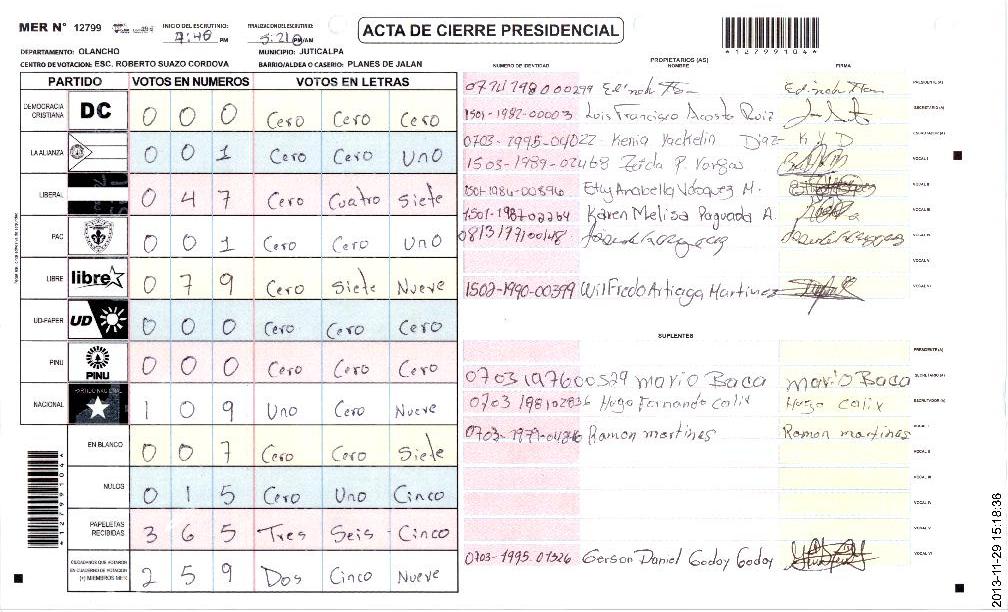 MER N° 12799 INICIO DEL ESCRUTINIO: PM FINALIZACION DEL ESCRUTINIO: PM/AM
ACTA DE CIERRE PRESIDENCIAL
*1279910 4*
DEPARTAMENTO: OLANCHO MUNICIPIO: JUTICALPA
CENTRO DE VOTACION: ESC. ROBERTO SUAZO CORDOVA BARRIO/ALDEA O CASERIO: PLANES DE JALAN
PARTIDO VOTOS EN NUMEROS VOTOS EN LETRAS
DEMOCRACIA CRISTIANA DC 0 0 0 Cero Cero Cero
LA ALIANZA 0 0 1 Cero Cero Uno
LIBERAL 0 4 7 Cero Cuatro Siete
PAC 0 0 1 Cero Cero Uno
LIBRE libre 0 7 9 Cero Siete Nueve
UD-FAPER UD 0 0 0 Cero Cero Cero
PINU PINU 0 0 0 Cero Cero Cero
NACIONAL 1 0 9 Uno Cero Nueve
EN BLANCO 0 0 7 Cero Cero Siete
NULOS 0 1 5 Cero Uno Cinco
PAPELETAS RECIBIDAS 3 6 5 Tres Seis Cinco
CIUDADANOS QUE VOTARON EN CUADERNO DE VOTACION (+) MIEMBROS MER 2 5 9 Dos Cinco Nueve
PROPIETARIOS (AS)
NUMERO DE IDENTIDAD NOMBRE FIRMA
PRESIDENTE (A)
1501-1982-00003 Luis Francisco Acosta Ruiz SECRETARIO (A)
0703-1995-04022 Kenia Yackelin Diaz K Y D ESCRUTADOR (A)
1503-1989-02468 Zeida P. Vargas VOCAL I
1501-1986-00896 Etty Anabella Vasquez M. VOCAL II
Karen Melisa Paguada A. VOCAL III
VOCAL IV
VOCAL V
1502-1990-00399 Wilfredo Artiaga Martinez VOCAL VI
SUPLENTES
PRESIDENTE (A)
0703197600529 Mario Baca Mario Baca SECRETARIO (A)
0703 198102836 Hugo Fernando Calix Hugo Calix ESCRUTADOR (A)
Ramon martines Ramon martines VOCAL I
VOCAL II
VOCAL III
VOCAL IV
VOCAL V
0703-1995-01326 Gerson Daniel Godoy Godoy VOCAL VI
2013-11-29 15:18:36